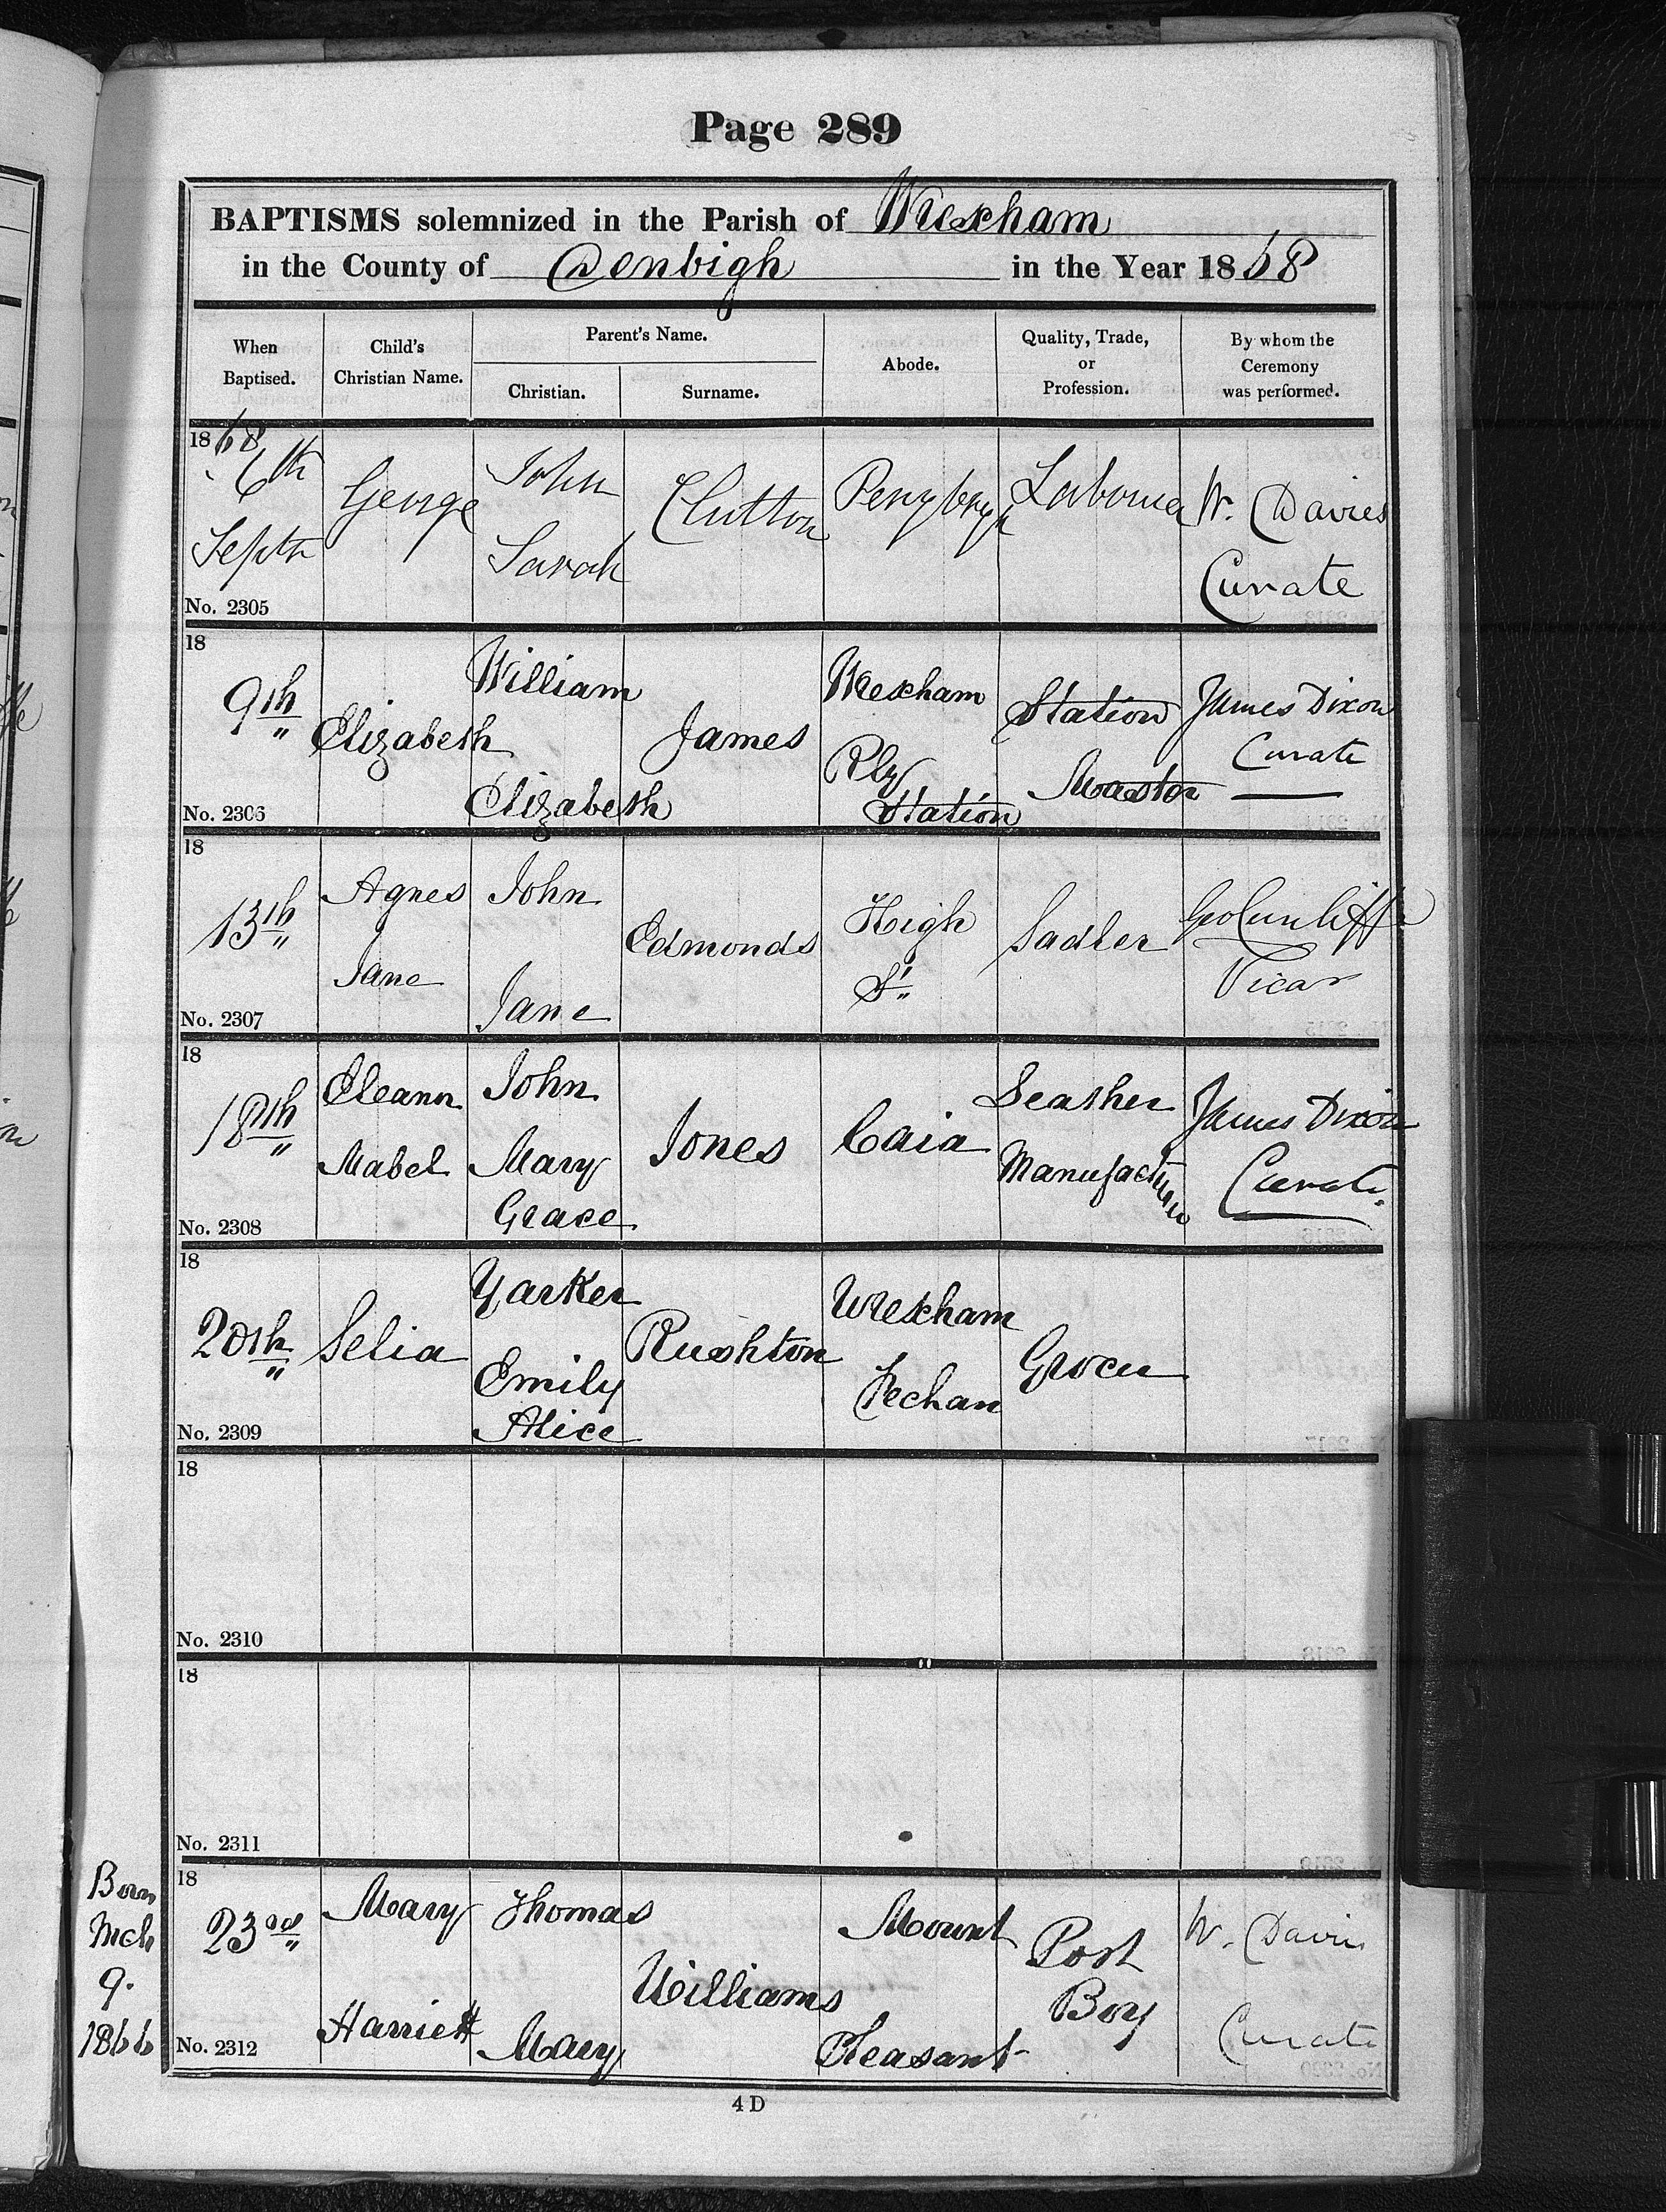 Page 289
BAPTISMS solemnized in the Parish of Wrexham
in the County of Denbigh in the Year 1868
When Baptised.
Child's Christian Name.
Parent's Name.
Christian.
Surname.
Abode.
Quality, Trade, or Profession.
By whom the Ceremony was performed.
1868
6th
Septr
No. 2305
George
John
Sarah
Clutton
Penybryn
Labourer
W. Davies
Curate
18
9th "
No. 2306
Elizabeth
William
Elizabeth
James
Wrexham
Rly
Station
Station
Master
James Dixon
Curate
18
13th "
No. 2307
Agnes
Jane
John
Jane
Edmonds
High
St "
Sadler
Geo Cunliffe
Vicar
18
18th "
No. 2308
Eleanor
Mabel
John
Mary
Grace
Jones
Caia
Leather
Manufacturer
James Dixon
Curate.
18
20th "
No. 2309
Selia
Yarker
Emily
Alice
Rushton
Wrexham
Fechan
Grocer
18
No. 2310
18
No. 2311
Born
Mch
9.
1866
18
23rd "
No. 2312
Mary
Harriett
Thomas
Mary
Williams
Mount
Pleasant
Post
Boy
W. Davies
Curate
4 D